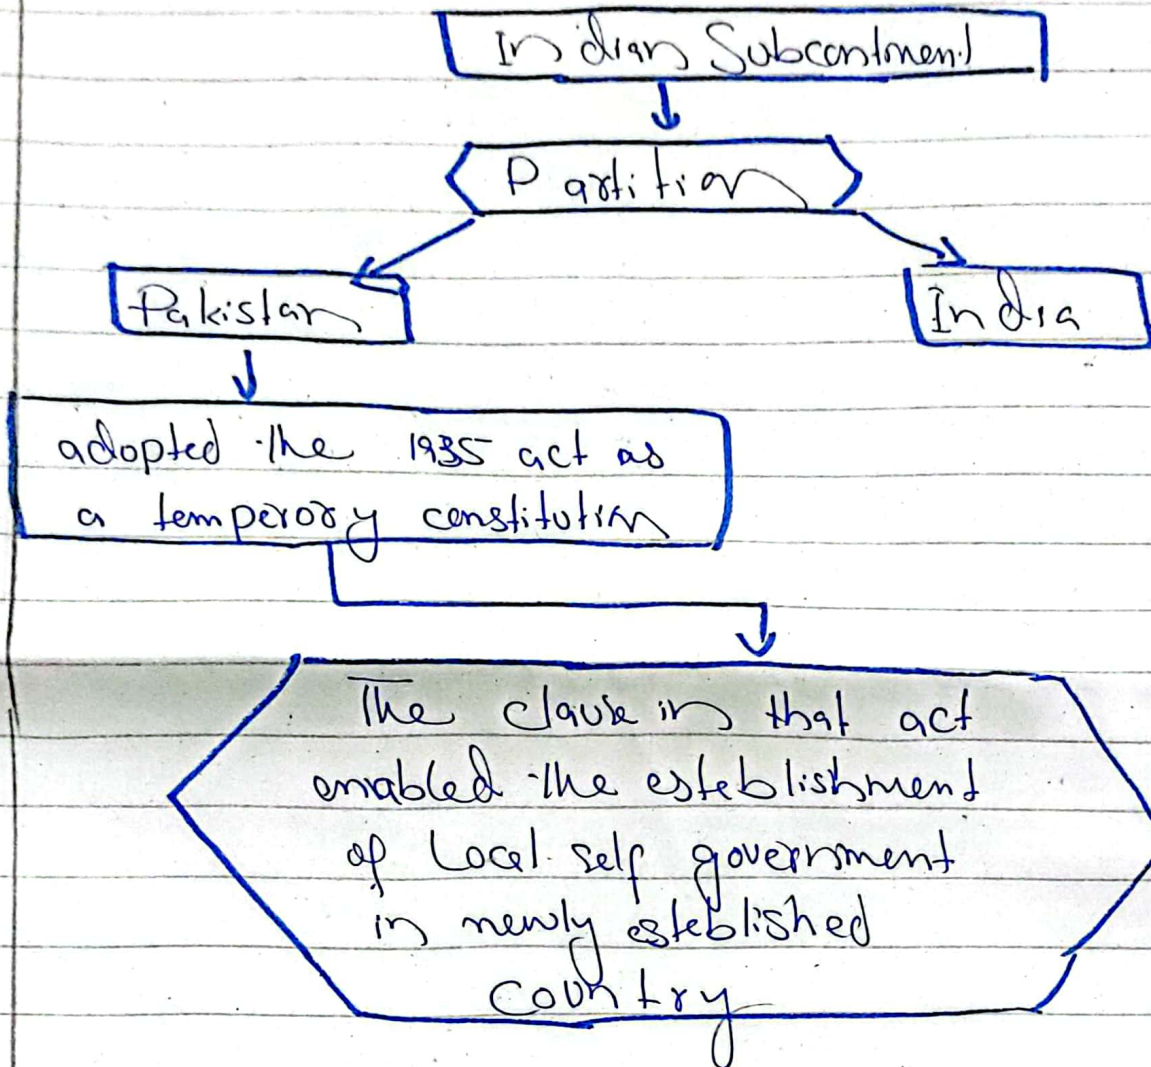 Indian Subcontinent
Partition
Pakistan
India
adopted the 1935 act as
a temperory constitution
The clause in that act
enabled the esteblishment
of local self government
in newly esteblished
Country